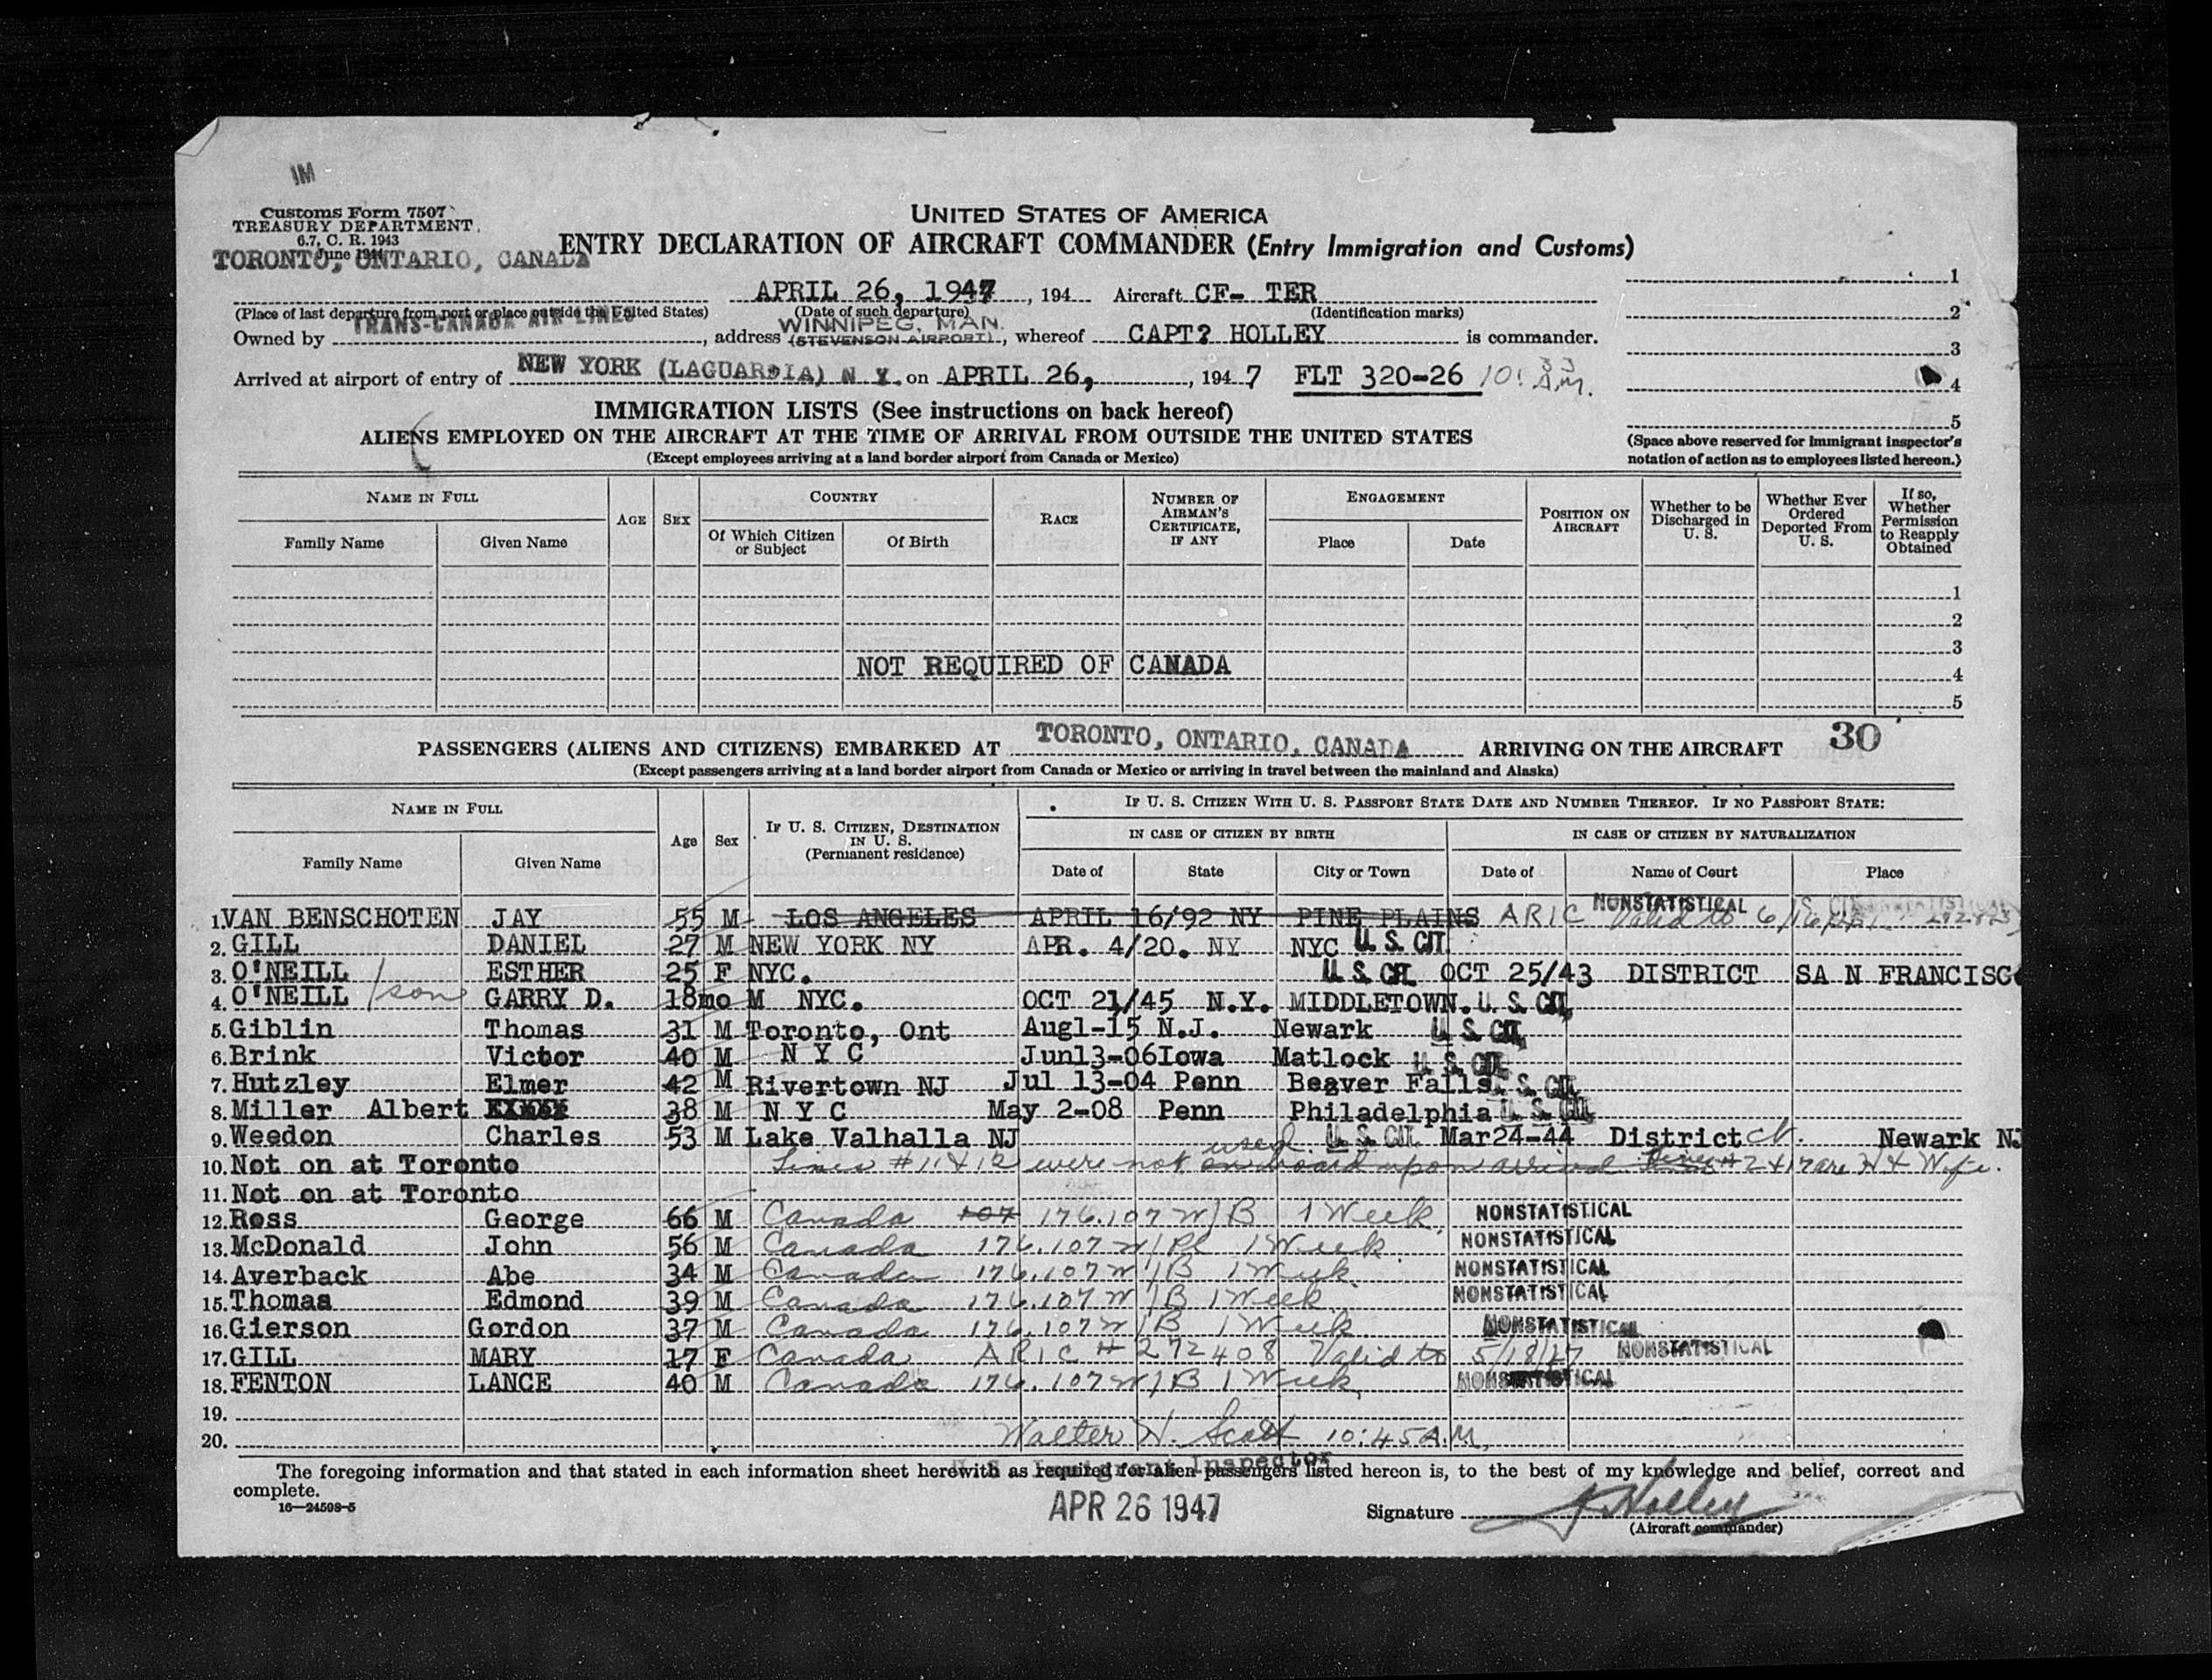 IM
Customs Form 7507
TREASURY DEPARTMENT
6.7, C. R. 1943
June 1944
UNITED STATES OF AMERICA
ENTRY DECLARATION OF AIRCRAFT COMMANDER (Entry Immigration and Customs)
TORONTO, ONTARIO, CANADA
APRIL 26, 1947, 194 Aircraft CF- TER
(Place of last departure from port or place outside the United States) (Date of such departure) (Identification marks)
Owned by TRANS-CANADA AIR LINES, address WINNIPEG, MAN. (STEVENSON AIRPORT), whereof CAPT? HOLLEY is commander.
Arrived at airport of entry of NEW YORK (LAGUARDIA) N Y. on APRIL 26, , 1947 FLT 320-26 10:33 A.M.
1
2
3
4
5
(Space above reserved for Immigrant inspector's notation of action as to employees listed hereon.)
IMMIGRATION LISTS (See instructions on back hereof)
ALIENS EMPLOYED ON THE AIRCRAFT AT THE TIME OF ARRIVAL FROM OUTSIDE THE UNITED STATES
(Except employees arriving at a land border airport from Canada or Mexico)
NAME IN FULL AGE SEX COUNTRY RACE NUMBER OF AIRMAN'S CERTIFICATE, IF ANY ENGAGEMENT POSITION ON AIRCRAFT Whether to be Discharged in U. S. Whether Ever Ordered Deported From U. S. If so, Whether Permission to Reapply Obtained
Family Name Given Name Of Which Citizen or Subject Of Birth Place Date
1
2
3
NOT REQUIRED OF CANADA 4
5
PASSENGERS (ALIENS AND CITIZENS) EMBARKED AT TORONTO, ONTARIO, CANADA ARRIVING ON THE AIRCRAFT 30
(Except passengers arriving at a land border airport from Canada or Mexico or arriving in travel between the mainland and Alaska)
NAME IN FULL Age Sex IF U. S. CITIZEN, DESTINATION IN U. S. (Permanent residence) IF U. S. CITIZEN WITH U. S. PASSPORT STATE DATE AND NUMBER THEREOF. IF NO PASSPORT STATE:
IN CASE OF CITIZEN BY BIRTH IN CASE OF CITIZEN BY NATURALIZATION
Family Name Given Name Date of State City or Town Date of Name of Court Place
1. VAN BENSCHOTEN JAY 55 M LOS ANGELES APRIL 16/92 NY PINE PLAINS ARIC NONSTATISTICAL Valid to
2. GILL DANIEL 27 M NEW YORK NY APR. 4/20. NY NYC U. S. CIT.
3. O'NEILL ESTHER 25 F NYC. U. S. CIT. OCT 25/43 DISTRICT SAN FRANCISCO
4. O'NEILL /son GARRY D. 18mo M NYC. OCT 21/45 N.Y. MIDDLETOWN. U. S. CIT.
5. Giblin Thomas 31 M Toronto, Ont Aug1-15 N.J. Newark U. S. CIT.
6. Brink Victor 40 M N Y C Jun13-06 Iowa Matlock U. S. CIT.
7. Hutzley Elmer 42 M Rivertown NJ Jul 13-04 Penn Beaver Falls U. S. CIT.
8. Miller Albert 38 M N Y C May 2-08 Penn Philadelphia U. S. CIT.
9. Weedon Charles 53 M Lake Valhalla NJ U. S. CIT. Mar24-44 District Ct. Newark NJ
10. Not on at Toronto Lines #11 & 12 were not used on board upon arrival Lines # 2 & 17 are H & Wife.
11. Not on at Toronto
12. Ross George 66 M Canada 107 176.107 W/B 1 Week. NONSTATISTICAL
13. McDonald John 56 M Canada 176.107 W/Pl 1 Week NONSTATISTICAL
14. Averback Abe 34 M Canada 176.107 W/B 1 Week. NONSTATISTICAL
15. Thomas Edmond 39 M Canada 176.107 W/B 1 Week. NONSTATISTICAL
16. Gierson Gordon 37 M Canada 176.107 W/B 1 Week. NONSTATISTICAL
17. GILL MARY 17 F Canada ARIC # 272408 Valid to 5/18/47 NONSTATISTICAL
18. FENTON LANCE 40 M Canada 176.107 W/B 1 Week. NONSTATISTICAL
19.
20. Walter N. Scott 10:45 A.M.
U. S. Immigrant Inspector
The foregoing information and that stated in each information sheet herewith as required for alien passengers listed hereon is, to the best of my knowledge and belief, correct and
complete.
16—24598-5
APR 26 1947
Signature J. Holley
(Aircraft commander)